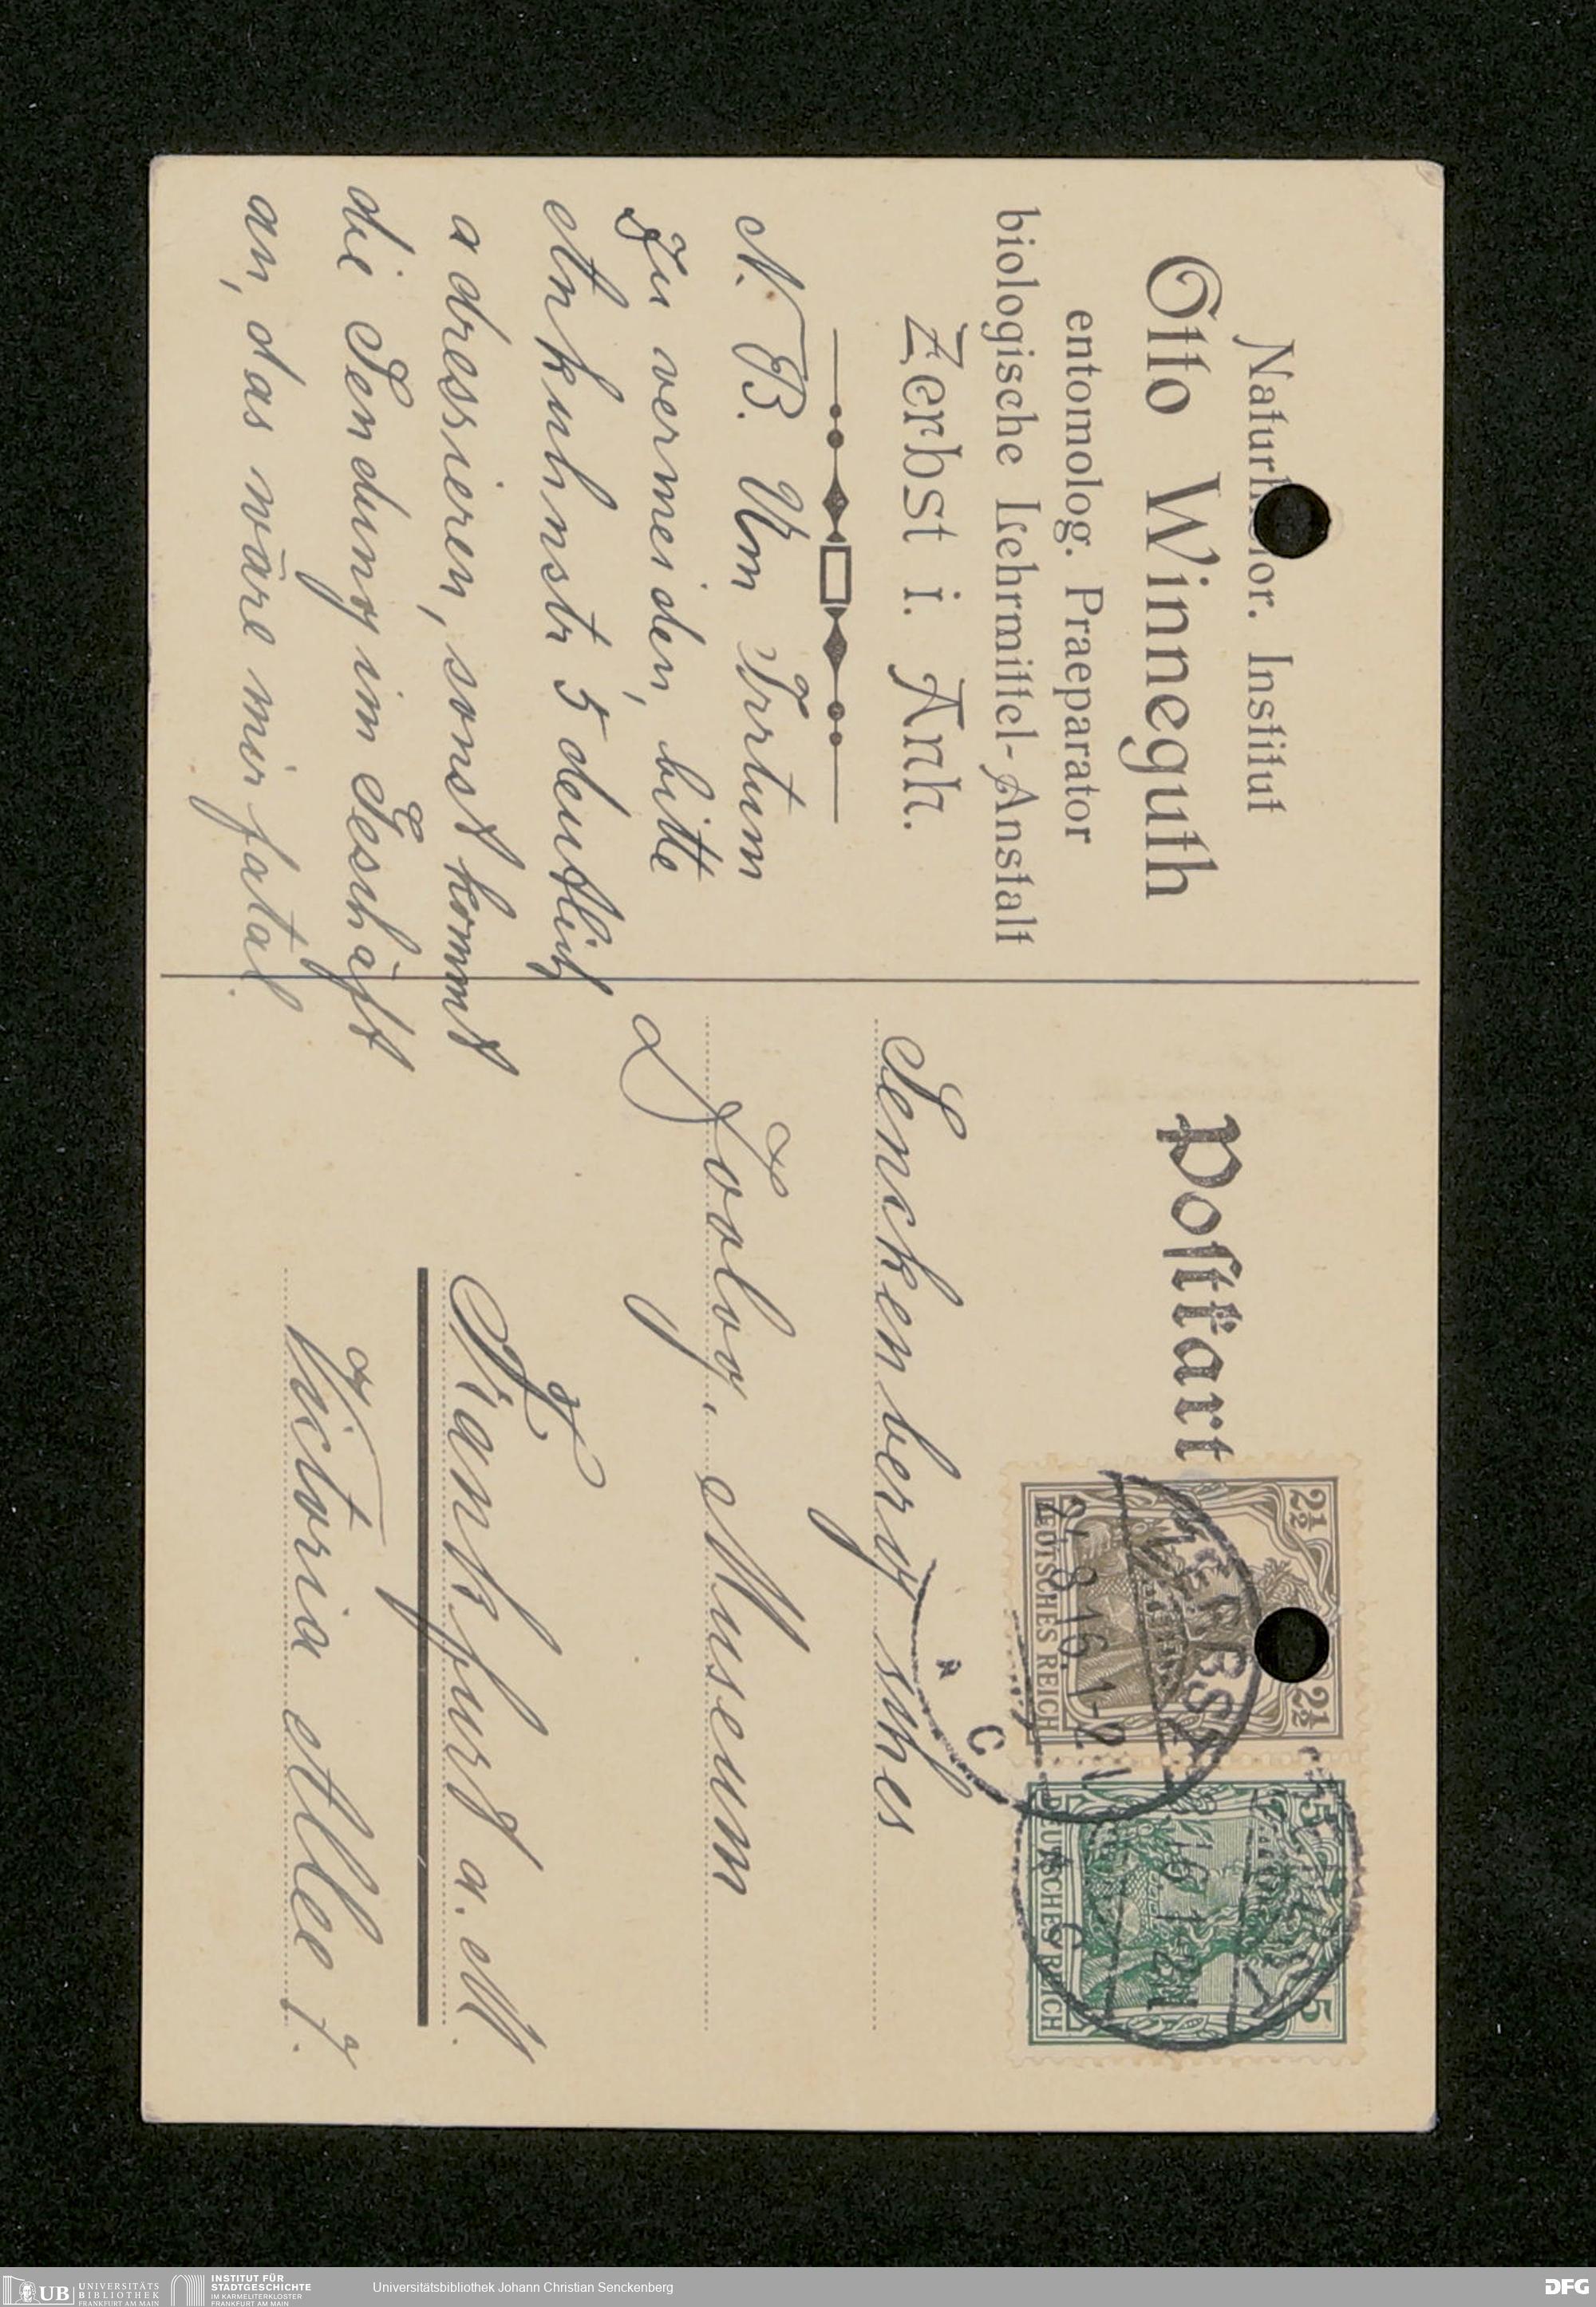 Naturhistor. Institut
Otto Winneguth
entomolog. Praeparator
biologische Lehrmittel-Anstalt
Zerbst i. Anh.
N. B. Um Irrtum
zu vermeiden, bitte
Ankuhnstr 5 deutlich
adressieren, sonst kommt
die Sendung im Geschäft
an, das wäre mir fatal.
Postkarte
2½ 2½
DEUTSCHES REICH
ZERBST
24.8.16. 1-2N
C
5 5
DEUTSCHES REICH
ZERBST
16. 1-2N
C
Senckenbergsches
Zoolog. Museum
Frankfurt a. M.
Victoria Allee 7.
UB UNIVERSITÄTS
BIBLIOTHEK
FRANKFURT AM MAIN
INSTITUT FÜR
STADTGESCHICHTE
IM KARMELITERKLOSTER
FRANKFURT AM MAIN
Universitätsbibliothek Johann Christian Senckenberg
DFG